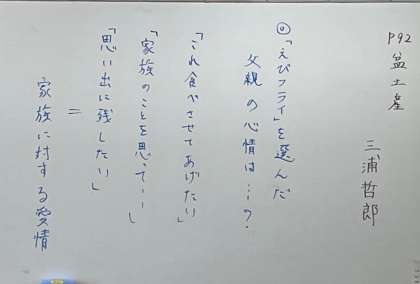 P92 盆土産
三浦哲郎
◎「えびフライ」を選んだ
父親の心情は…?
「これ食べさせてあげたい」
「家族のことを思って…」
「思い出に残したい」
＝
家族に対する愛情